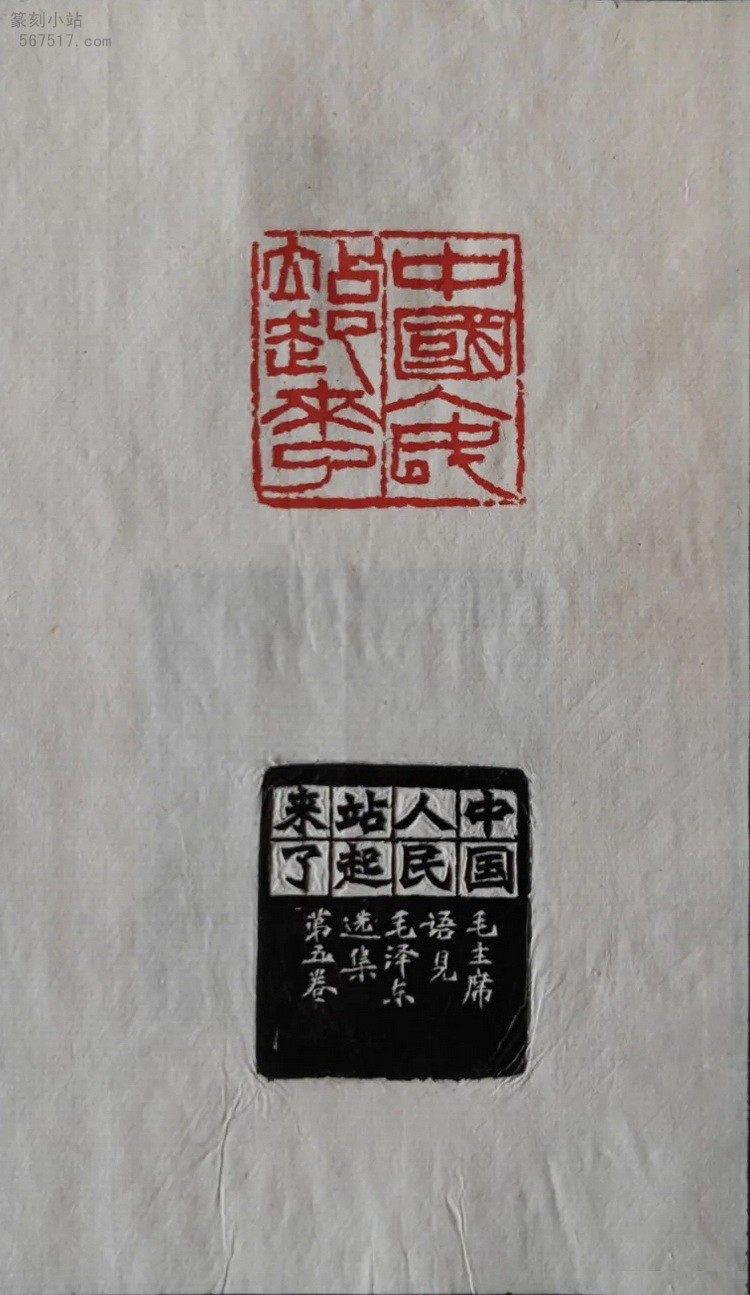 篆刻小站
567517.com
中國人民
站起來了
中国
人民
站起
来了
毛主席
语见
毛泽东
选集
第五卷